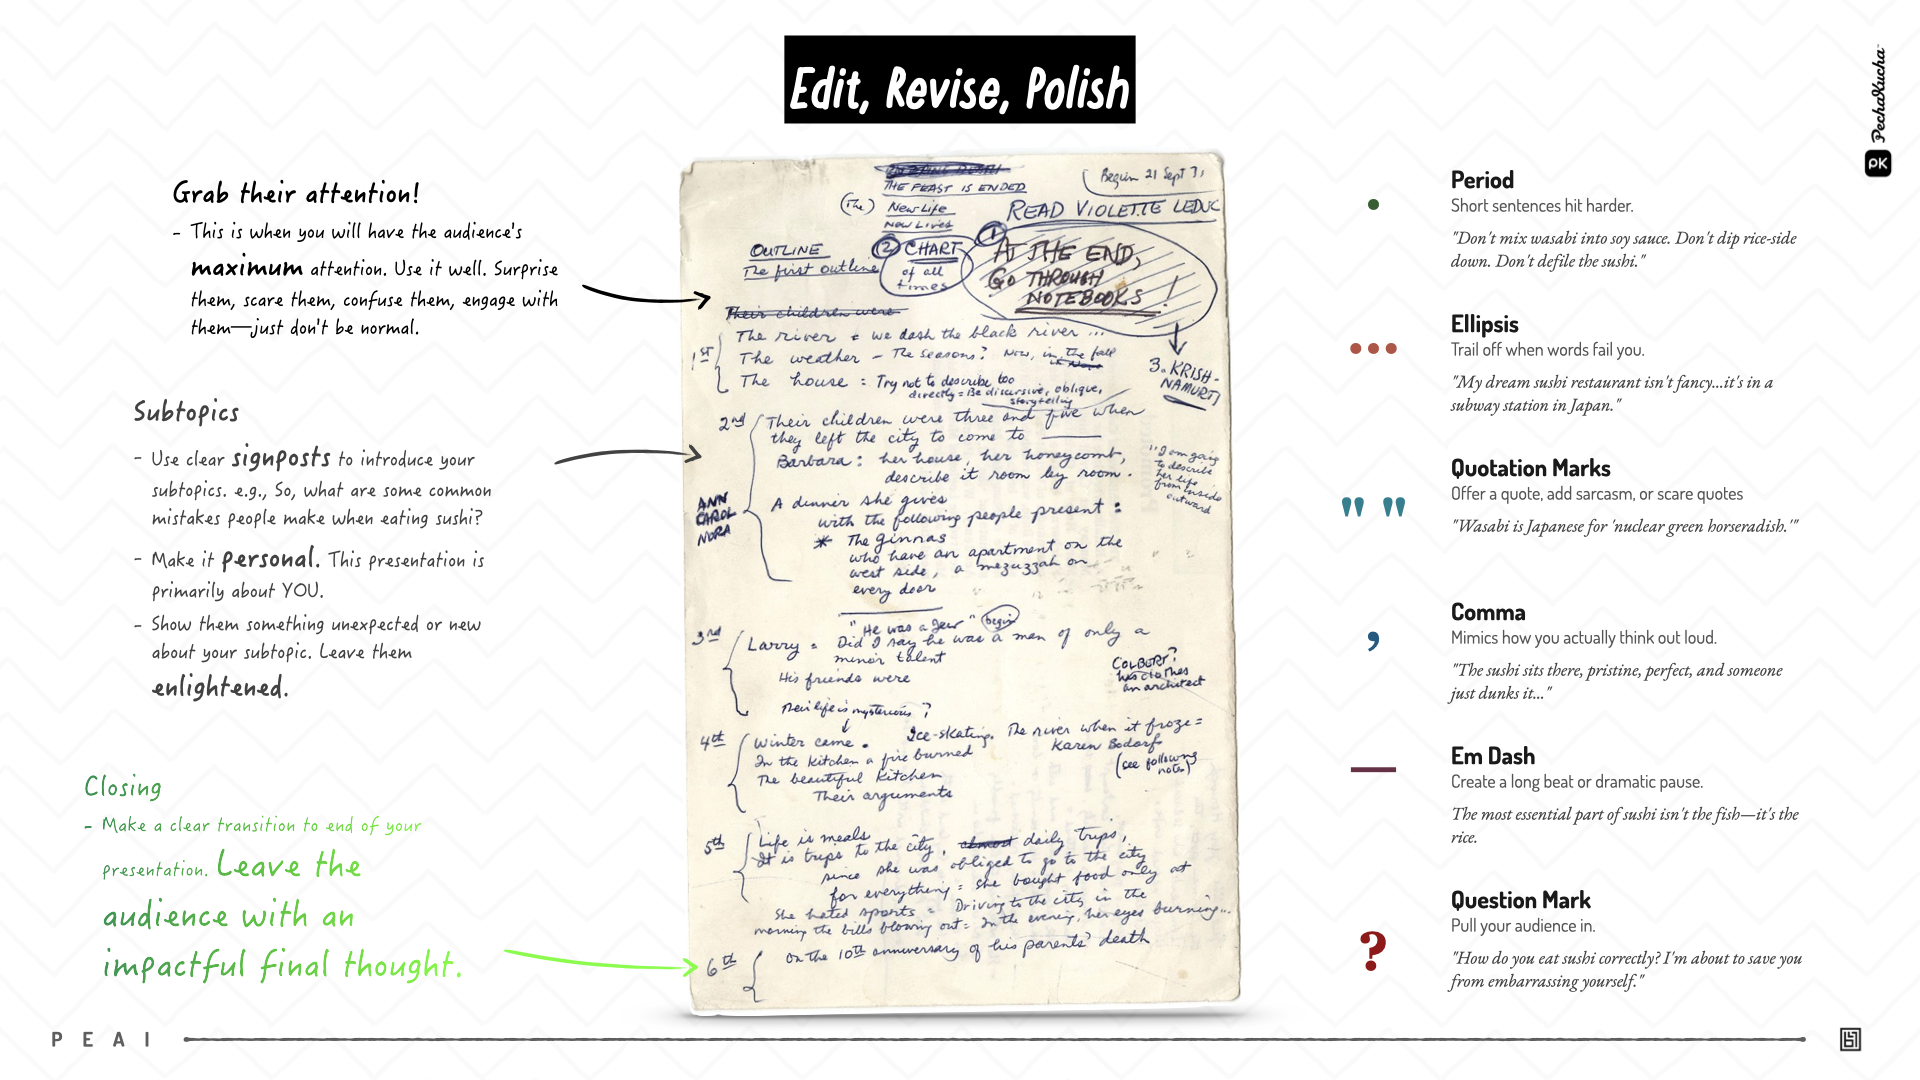 Edit, Revise, Polish
PechaKucha
PK
Grab their attention!
- This is when you will have the audience's
maximum attention. Use it well. Surprise
them, scare them, confuse them, engage with
them—just don't be normal.
Subtopics
- Use clear signposts to introduce your
subtopics. e.g., So, what are some common
mistakes people make when eating sushi?
- Make it personal. This presentation is
primarily about YOU.
- Show them something unexpected or new
about your subtopic. Leave them
enlightened.
Closing
- Make a clear transition to end of your
presentation. Leave the
audience with an
impactful final thought.
THE FEAST IS ENDED
Begun 21 Sept
(The) New Life
New Lives
READ VIOLETTE LEDUC
OUTLINE
The first outline
2 CHART
of all
times
1
AT THE END,
GO THROUGH
NOTEBOOKS!
3. KRISH-
NAMURTI
Their children were
1st
The river = we dash the black river ...
The weather - The seasons? Now, in the fall
The house : Try not to describe too
directly = Be discursive, oblique,
storytelling
2nd
Their children were three and five when
they left the city to come to
Barbara : her house, her honeycomb,
describe it room by room.
"I am going
to describe
her life
from inside
outward
ANN
CAROL
NORA
A dinner she gives
with the following people present :
* The ginnas
who have an apartment on the
west side, a mezuzzah on
every door
3rd
"He was a Jew" begin
Larry = Did I say he was a man of only a
minor talent
His friends were
Their life is mysterious ?
COLBERT?
has clothes
an architect
4th
Winter came.
Ice-skating. The river when it froze =
Karen Bodorf
(see following
notes)
In the kitchen a fire burned
The beautiful kitchen
Their arguments
5th
Life is meals
It is trips to the city, almost daily trips,
since she was obliged to go to the city
for everything = she bought food only at
She hated sports = Driving to the city in the
morning the bills blowing out = In the evening, her eyes burning...
6th
On the 10th anniversary of his parents' death
Period
Short sentences hit harder.
"Don't mix wasabi into soy sauce. Don't dip rice-side
down. Don't defile the sushi."
Ellipsis
Trail off when words fail you.
"My dream sushi restaurant isn't fancy...it's in a
subway station in Japan."
" "
Quotation Marks
Offer a quote, add sarcasm, or scare quotes
"Wasabi is Japanese for 'nuclear green horseradish.'"
,
Comma
Mimics how you actually think out loud.
"The sushi sits there, pristine, perfect, and someone
just dunks it..."
—
Em Dash
Create a long beat or dramatic pause.
The most essential part of sushi isn't the fish—it's the
rice.
?
Question Mark
Pull your audience in.
"How do you eat sushi correctly? I'm about to save you
from embarrassing yourself."
PEAI